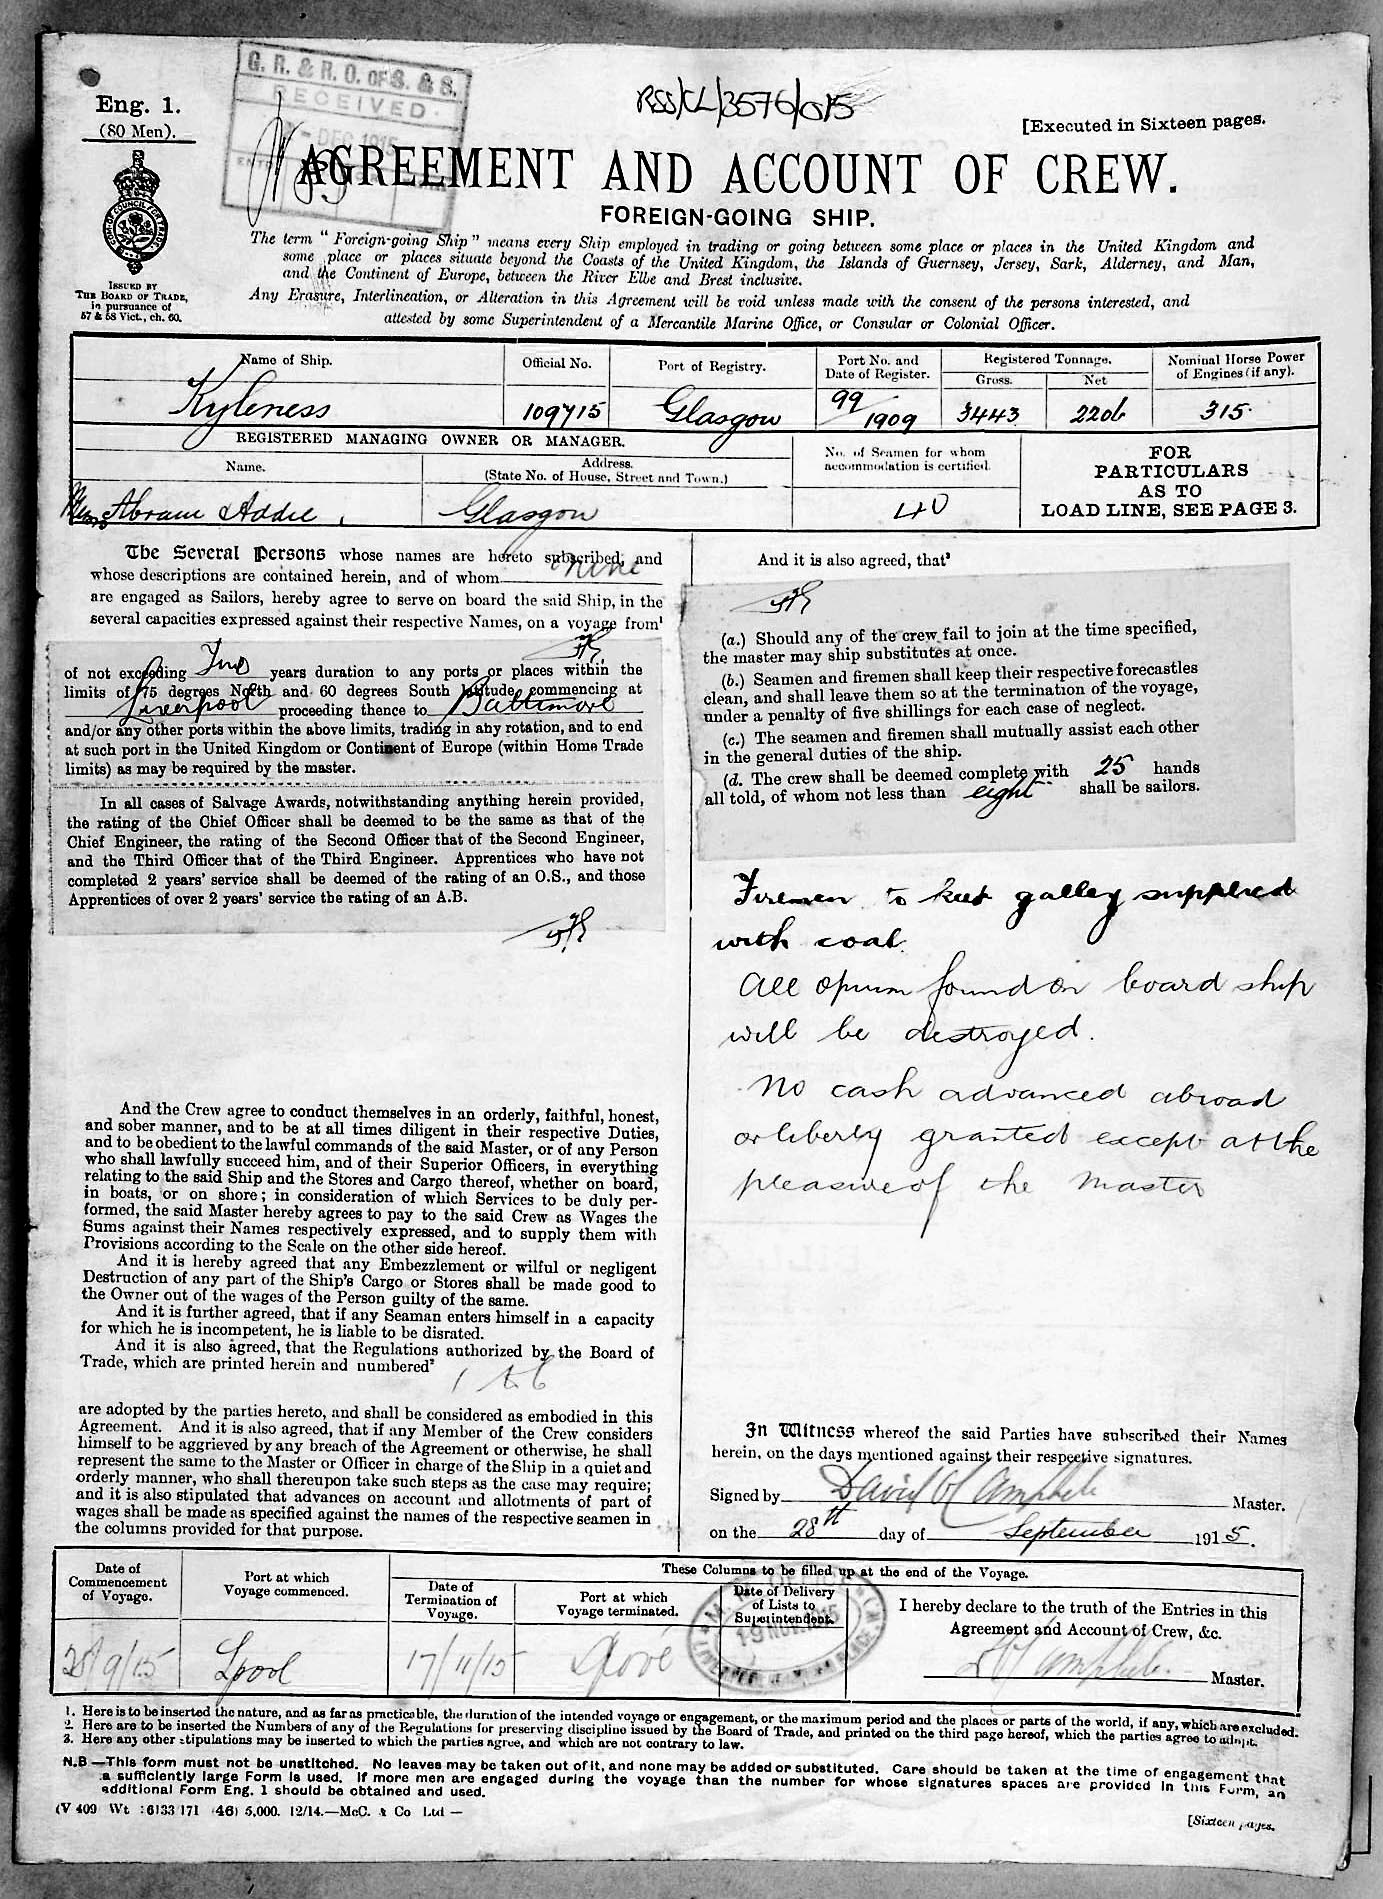 Eng. 1.
(80 Men).
G. R. & R. O. OF S. & S.
RECEIVED
DEC 1915
RSS/CL/3576/015
[Executed in Sixteen pages.
AGREEMENT AND ACCOUNT OF CREW.
FOREIGN-GOING SHIP.
ISSUED BY
THE BOARD OF TRADE,
in pursuance of
57 & 58 Vict., ch. 60.
The term "Foreign-going Ship" means every Ship employed in trading or going between some place or places in the United Kingdom and
some place or places situate beyond the Coasts of the United Kingdom, the Islands of Guernsey, Jersey, Sark, Alderney, and Man,
and the Continent of Europe, between the River Elbe and Brest inclusive.
Any Erasure, Interlineation, or Alteration in this Agreement will be void unless made with the consent of the persons interested, and
attested by some Superintendent of a Mercantile Marine Office, or Consular or Colonial Officer.
Name of Ship. Official No. Port of Registry. Port No. and Date of Register. Registered Tonnage. Gross. Net Nominal Horse Power of Engines (if any).
Kyleness 109715 Glasgow 99/1909 3443 2206 315
REGISTERED MANAGING OWNER OR MANAGER.
Name. Address. (State No. of House, Street and Town.)
No. of Seamen for whom accommodation is certified.
FOR
PARTICULARS
AS TO
LOAD LINE, SEE PAGE 3.
Abram Addie Glasgow 40
The Several Persons whose names are hereto subscribed, and
whose descriptions are contained herein, and of whom nine
are engaged as Sailors, hereby agree to serve on board the said Ship, in the
several capacities expressed against their respective Names, on a voyage from¹
of not exceeding Two years duration to any ports or places within the
limits of 75 degrees North and 60 degrees South latitude, commencing at
Liverpool proceeding thence to Baltimore
and/or any other ports within the above limits, trading in any rotation, and to end
at such port in the United Kingdom or Continent of Europe (within Home Trade
limits) as may be required by the master.
In all cases of Salvage Awards, notwithstanding anything herein provided,
the rating of the Chief Officer shall be deemed to be the same as that of the
Chief Engineer, the rating of the Second Officer that of the Second Engineer,
and the Third Officer that of the Third Engineer. Apprentices who have not
completed 2 years' service shall be deemed of the rating of an O.S., and those
Apprentices of over 2 years' service the rating of an A.B.
And the Crew agree to conduct themselves in an orderly, faithful, honest,
and sober manner, and to be at all times diligent in their respective Duties,
and to be obedient to the lawful commands of the said Master, or of any Person
who shall lawfully succeed him, and of their Superior Officers, in everything
relating to the said Ship and the Stores and Cargo thereof, whether on board,
in boats, or on shore; in consideration of which Services to be duly per-
formed, the said Master hereby agrees to pay to the said Crew as Wages the
Sums against their Names respectively expressed, and to supply them with
Provisions according to the Scale on the other side hereof.
And it is hereby agreed that any Embezzlement or wilful or negligent
Destruction of any part of the Ship's Cargo or Stores shall be made good to
the Owner out of the wages of the Person guilty of the same.
And it is further agreed, that if any Seaman enters himself in a capacity
for which he is incompetent, he is liable to be disrated.
And it is also agreed, that the Regulations authorized by the Board of
Trade, which are printed herein and numbered²
1 to 6
are adopted by the parties hereto, and shall be considered as embodied in this
Agreement. And it is also agreed, that if any Member of the Crew considers
himself to be aggrieved by any breach of the Agreement or otherwise, he shall
represent the same to the Master or Officer in charge of the Ship in a quiet and
orderly manner, who shall thereupon take such steps as the case may require;
and it is also stipulated that advances on account and allotments of part of
wages shall be made as specified against the names of the respective seamen in
the columns provided for that purpose.
And it is also agreed, that³
(a.) Should any of the crew fail to join at the time specified,
the master may ship substitutes at once.
(b.) Seamen and firemen shall keep their respective forecastles
clean, and shall leave them so at the termination of the voyage,
under a penalty of five shillings for each case of neglect.
(c.) The seamen and firemen shall mutually assist each other
in the general duties of the ship.
(d. The crew shall be deemed complete with 25 hands
all told, of whom not less than eight shall be sailors.
Firemen to keep galley supplied
with coal.
All opium found on board ship
will be destroyed.
No cash advanced abroad
or liberty granted except at the
pleasure of the Master
In Witness whereof the said Parties have subscribed their Names
herein, on the days mentioned against their respective signatures.
Signed by David H Campbell Master.
on the 28th day of September 1915.
Date of Commencement of Voyage. Port at which Voyage commenced.
These Columns to be filled up at the end of the Voyage.
Date of Termination of Voyage. Port at which Voyage terminated. Date of Delivery of Lists to Superintendent.
I hereby declare to the truth of the Entries in this
Agreement and Account of Crew, &c.
28/9/15 Lpool 17/11/15 19 NOV 1915
D H Campbell Master.
1. Here is to be inserted the nature, and as far as practicable, the duration of the intended voyage or engagement, or the maximum period and the places or parts of the world, if any, which are excluded.
2. Here are to be inserted the Numbers of any of the Regulations for preserving discipline issued by the Board of Trade, and printed on the third page hereof, which the parties agree to adopt.
3. Here any other stipulations may be inserted to which the parties agree, and which are not contrary to law.
N.B—This form must not be unstitched. No leaves may be taken out of it, and none may be added or substituted. Care should be taken at the time of engagement that
a sufficiently large Form is used. If more men are engaged during the voyage than the number for whose signatures spaces are provided in this Form, an
additional Form Eng. 1 should be obtained and used.
(V 409 Wt 16133/171 (46) 5,000. 12/14.—McC. & Co Ltd —
[Sixteen pages.